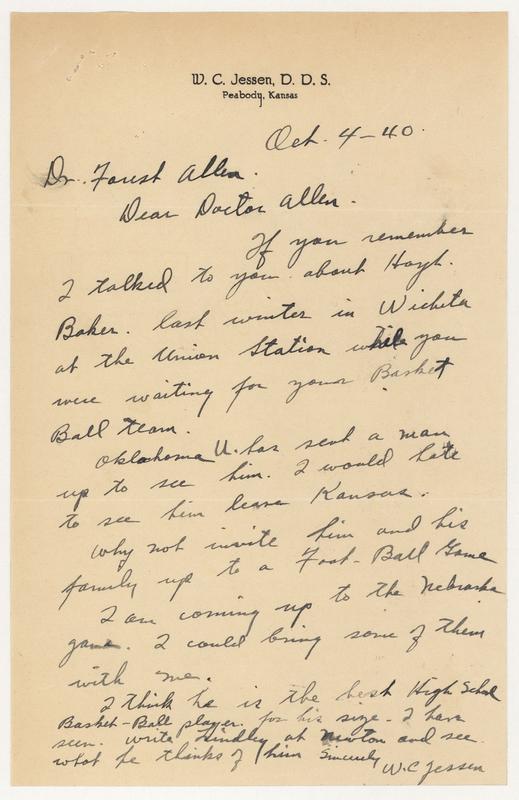 W. C. Jessen, D. D. S.
Peabody, Kansas
Oct. 4-40.
Dr. Forest Allen.
Dear Doctor Allen.
If you remember
I talked to you about Hoyt.
Baker. last winter in Wichita
at the Union Station while you
were waiting for your Basket
Ball team.
Oklahoma U. has sent a man
up to see him. I would hate
to see him leave Kansas.
Why not invite him and his
family up to a Foot-Ball Game
I am coming up to the Nebraska
game. I could bring some of them
with me.
I think he is the best High School
Basket-Ball player. for his size. I have
seen. Write Lindley at Newton and see
what he thinks of him Sincerely
W.C Jessen